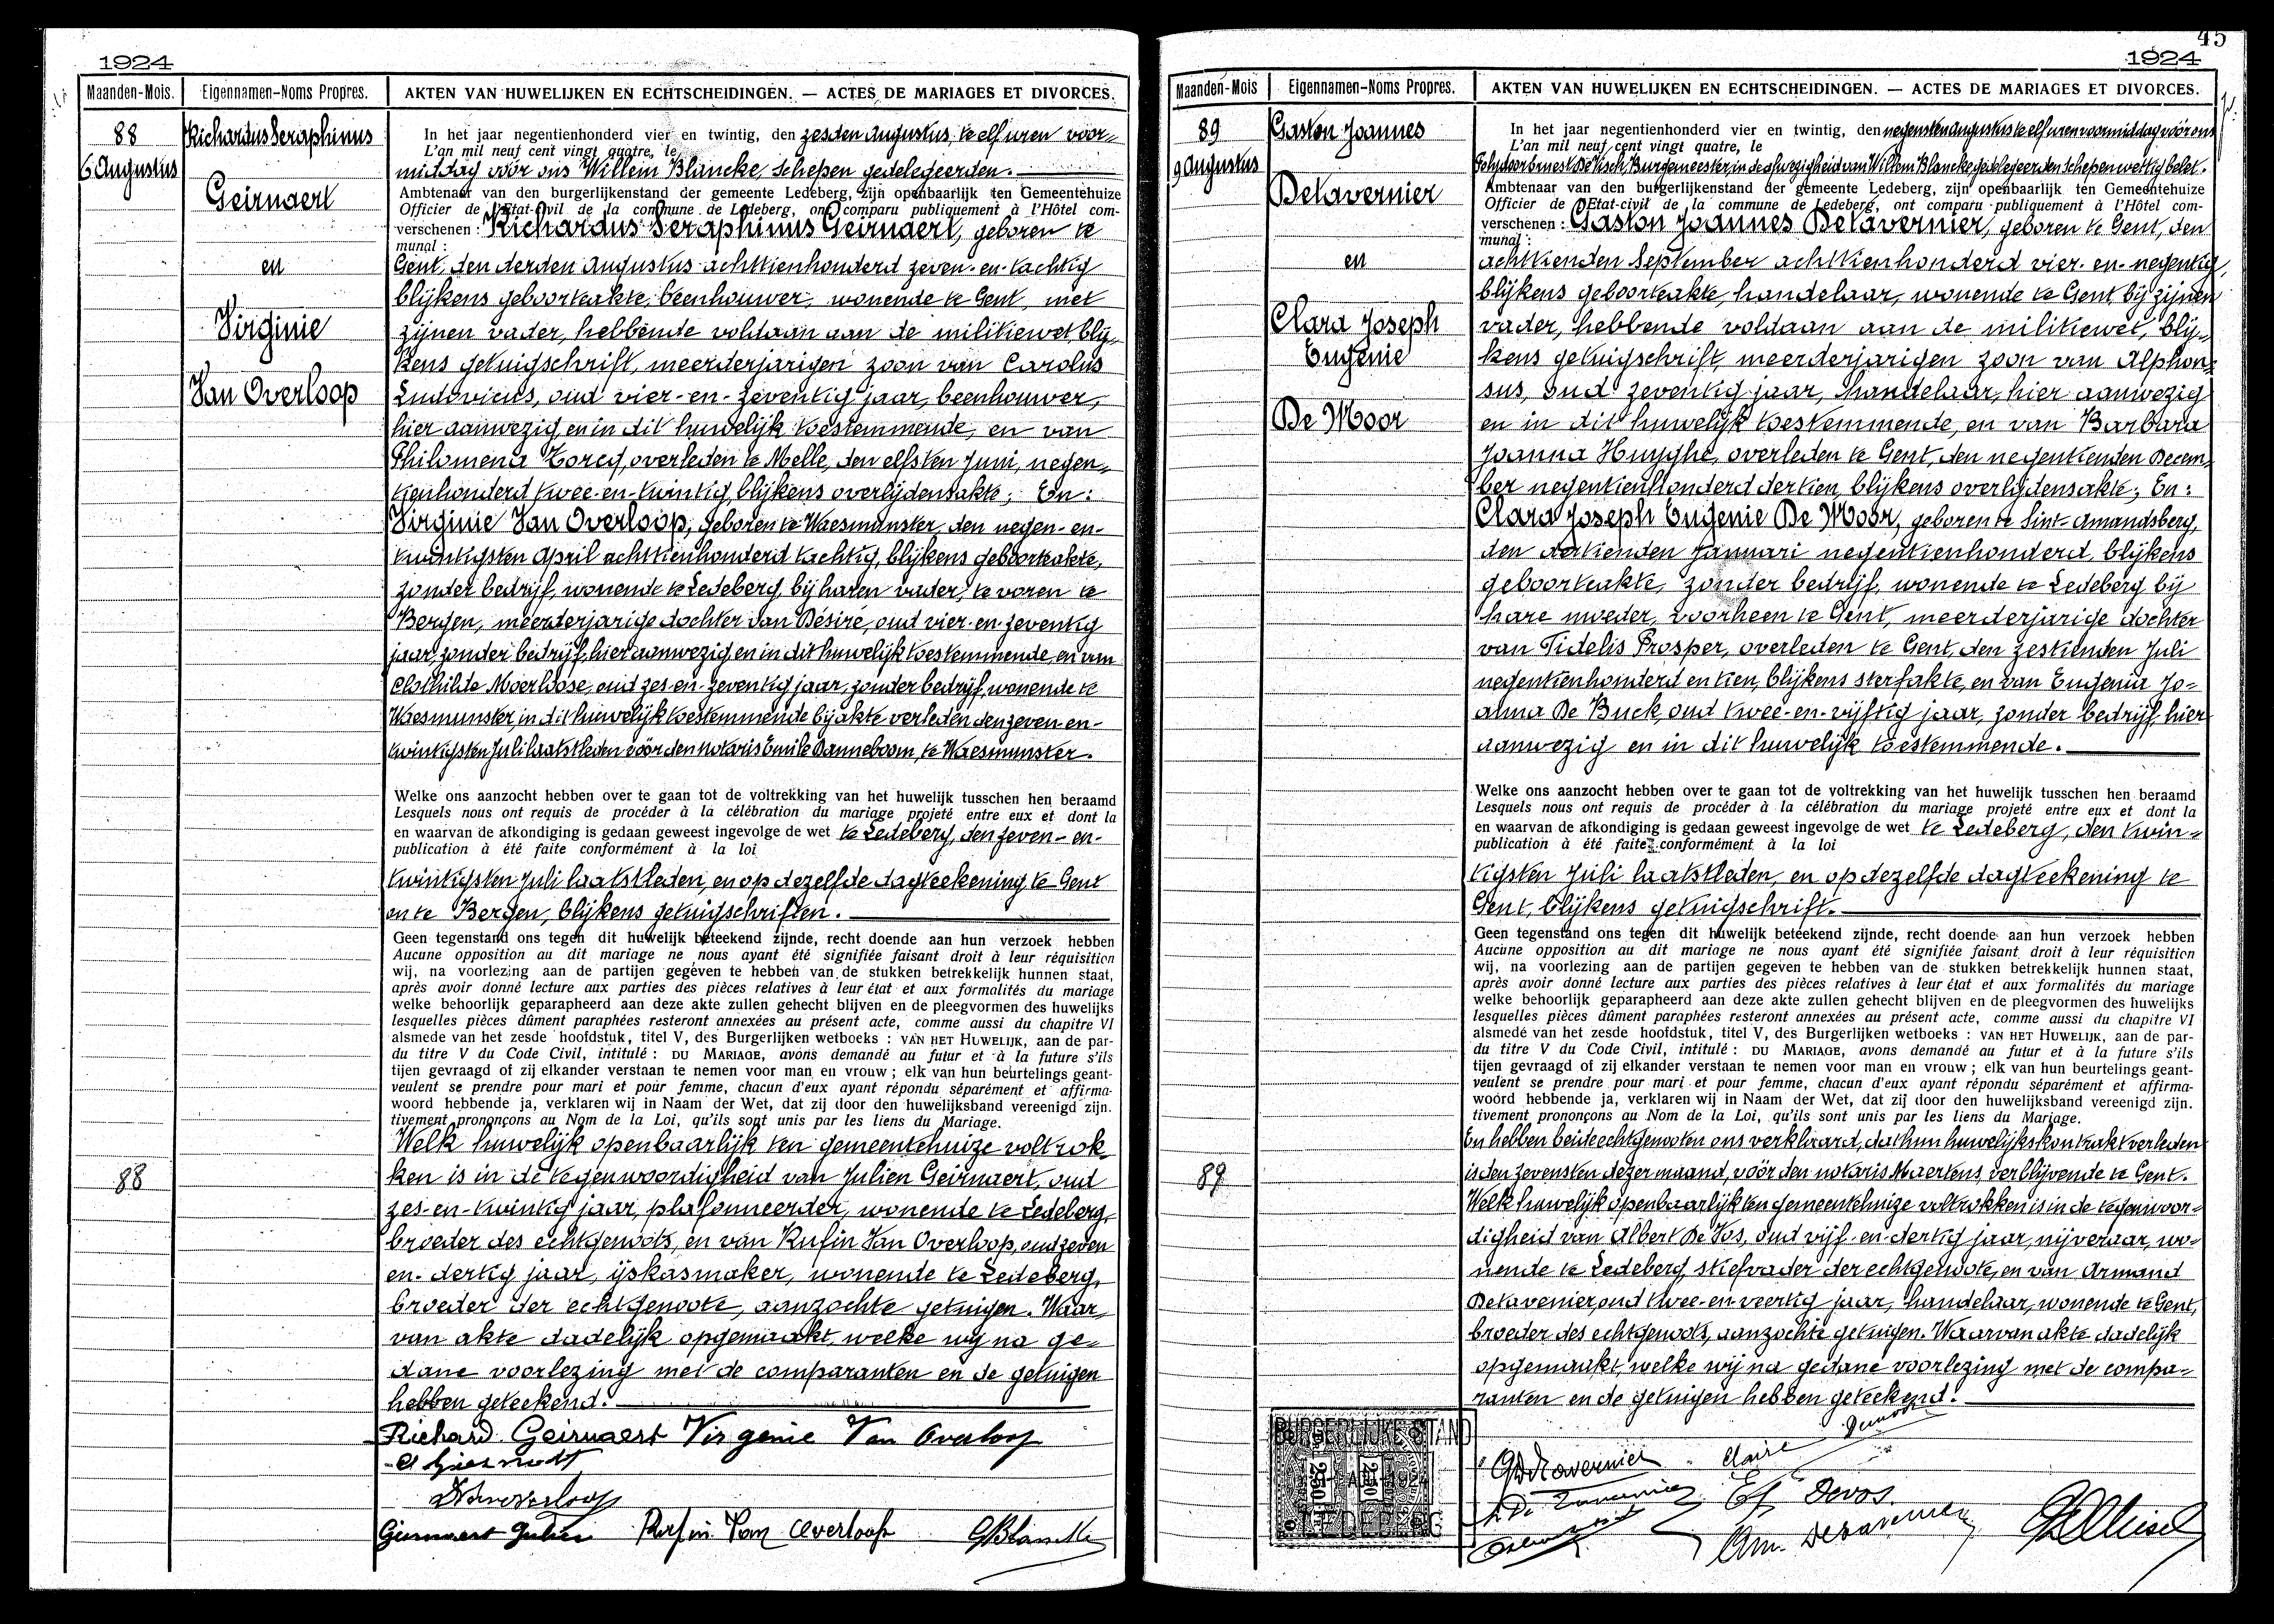 1924
Maanden-Mois. Eigennamen-Noms Propres. AKTEN VAN HUWELIJKEN EN ECHTSCHEIDINGEN. — ACTES DE MARIAGES ET DIVORCES.
88
6 Augustus
Richardus Seraphinus
Geirnaert
en
Virginie
Van Overloop
In het jaar negentienhonderd vier en twintig, den zesden Augustus, te elf uren voor-
L'an mil neuf cent vingt quatre, le
middag vóór ons Willem Blancke, schepen gedelegeerden.
Ambtenaar van den burgerlijkenstand der gemeente Ledeberg, zijn openbaarlijk ten Gemeentehuize
Officier de l'Etat-civil de la commune de Ledeberg, ont comparu publiquement à l'Hôtel com-
verschenen : Richardus Seraphinus Geirnaert, geboren te
munal :
Gent, den derden Augustus achttienhonderd zeven-en-tachtig
blijkens geboorteakte, beenhouwer, wonende te Gent, met
zijnen vader, hebbende voldaan aan de militiewet, blij-
kens getuigschrift, meerderjarigen zoon van Carolus
Ludovicus, oud vier-en-zeventig jaar, beenhouwer,
hier aanwezig en in dit huwelijk toestemmende, en van
Philomena Torcq, overleden te Melle, den elfsten Juni, negen-
tienhonderd twee-en-twintig, blijkens overlijdensakte; En:
Virginie Van Overloop, geboren te Waesmunster, den negen-en-
twintigsten April achttienhonderd tachtig, blijkens geboorteakte,
zonder bedrijf, wonende te Ledeberg, bij haren vader, te voren te
Bergen, meerderjarige dochter van Désiré, oud vier-en-zeventig
jaar, zonder bedrijf, hier aanwezig en in dit huwelijk toestemmende, en van
Clothilde Moerloose, oud zes-en-zeventig jaar, zonder bedrijf, wonende te
Waesmunster, in dit huwelijk toestemmende bij akte verleden den zeven-en-
twintigsten Juli laatstleden vóór den notaris Emile Danneboom, te Waesmunster.
Welke ons aanzocht hebben over te gaan tot de voltrekking van het huwelijk tusschen hen beraamd
Lesquels nous ont requis de procéder à la célébration du mariage projeté entre eux et dont la
en waarvan de afkondiging is gedaan geweest ingevolge de wet te Ledeberg, den zeven-en-
publication à été faite conformément à la loi
twintigsten Juli laatstleden, en op dezelfde dagteekening te Gent
en te Bergen, blijkens getuigschriften.
Geen tegenstand ons tegen dit huwelijk beteekend zijnde, recht doende aan hun verzoek hebben
Aucune opposition au dit mariage ne nous ayant été signifiée faisant droit à leur réquisition
wij, na voorlezing aan de partijen gegeven te hebben van de stukken betrekkelijk hunnen staat,
après avoir donné lecture aux parties des pièces relatives à leur état et aux formalités du mariage
welke behoorlijk geparapheerd aan deze akte zullen gehecht blijven en de pleegvormen des huwelijks
lesquelles pièces dûment paraphées resteront annexées au présent acte, comme aussi du chapitre VI
alsmede van het zesde hoofdstuk, titel V, des Burgerlijken wetboeks : VAN HET HUWELIJK, aan de par-
du titre V du Code Civil, intitulé : DU MARIAGE, avons demandé au futur et à la future s'ils
tijen gevraagd of zij elkander verstaan te nemen voor man en vrouw ; elk van hun beurtelings geant-
veulent se prendre pour mari et pour femme, chacun d'eux ayant répondu séparément et affirma-
woord hebbende ja, verklaren wij in Naam der Wet, dat zij door den huwelijksband vereenigd zijn.
tivement prononçons au Nom de la Loi, qu'ils sont unis par les liens du Mariage.
Welk huwelijk openbaarlijk ten gemeentehuize voltrok-
88
ken is in de tegenwoordigheid van Julien Geirnaert, oud
zes-en-twintig jaar, plafonneerder, wonende te Ledeberg,
broeder des echtgenoots, en van Rufin Van Overloop, oud zeven
en-dertig jaar, ijskasmaker, wonende te Ledeberg,
broeder der echtgenoote, aanzochte getuigen. Waar-
van akte dadelijk opgemaakt, welke wij na ge-
dane voorlezing met de comparanten en de getuigen
hebben geteekend.
Richard Geirnaert Virginie Van Overloop
Geirnaert Julien Rufin Van Overloop GBlancke
45
1924
Maanden-Mois Eigennamen-Noms Propres. AKTEN VAN HUWELIJKEN EN ECHTSCHEIDINGEN. — ACTES DE MARIAGES ET DIVORCES.
89
9 Augustus
Gaston Joannes
Detavernier
en
Clara Joseph
Eugenie
De Moor
In het jaar negentienhonderd vier en twintig, den negensten Augustus te elf uren voormiddag vóór ons
L'an mil neuf cent vingt quatre, le
Ernest De Visch, Burgemeester, in de afwezigheid van Willem Blancke gedelegeerden Schepen wettig belet.
Ambtenaar van den burgerlijkenstand der gemeente Ledeberg, zijn openbaarlijk ten Gemeentehuize
Officier de l'Etat-civil de la commune de Ledeberg, ont comparu publiquement à l'Hôtel com-
verschenen : Gaston Joannes Detavernier, geboren te Gent, den
munal :
achttienden September achttienhonderd vier-en-negentig,
blijkens geboorteakte, handelaar, wonende te Gent, bij zijnen
vader, hebbende voldaan aan de militiewet, blij-
kens getuigschrift, meerderjarigen zoon van Alphon-
sus, oud zeventig jaar, handelaar, hier aanwezig
en in dit huwelijk toestemmende, en van Barbara
Joanna Huyghe, overleden te Gent, den negentienden Decem-
ber negentienhonderd dertien, blijkens overlijdensakte; En:
Clara Joseph Eugenie De Moor, geboren te Sint-Amandsberg,
den dertienden Januari negentienhonderd, blijkens
geboorteakte, zonder bedrijf, wonende te Ledeberg bij
hare moeder, voorheen te Gent, meerderjarige dochter
van Fidelis Prosper, overleden te Gent, den zestienden Juli
negentienhonderd en tien, blijkens sterfakte, en van Eugenia Jo-
anna De Buck, oud twee-en-vijftig jaar, zonder bedrijf, hier
aanwezig en in dit huwelijk toestemmende.
Welke ons aanzocht hebben over te gaan tot de voltrekking van het huwelijk tusschen hen beraamd
Lesquels nous ont requis de procéder à la célébration du mariage projeté entre eux et dont la
en waarvan de afkondiging is gedaan geweest ingevolge de wet te Ledeberg, den twin-
publication à été faite conformément à la loi
tigsten Juli laatstleden, en op dezelfde dagteekening te
Gent, blijkens getuigschrift.
Geen tegenstand ons tegen dit huwelijk beteekend zijnde, recht doende aan hun verzoek hebben
Aucune opposition au dit mariage ne nous ayant été signifiée faisant droit à leur réquisition
wij, na voorlezing aan de partijen gegeven te hebben van de stukken betrekkelijk hunnen staat,
après avoir donné lecture aux parties des pièces relatives à leur état et aux formalités du mariage
welke behoorlijk geparapheerd aan deze akte zullen gehecht blijven en de pleegvormen des huwelijks
lesquelles pièces dûment paraphées resteront annexées au présent acte, comme aussi du chapitre VI
alsmede van het zesde hoofdstuk, titel V, des Burgerlijken wetboeks : VAN HET HUWELIJK, aan de par-
du titre V du Code Civil, intitulé : DU MARIAGE, avons demandé au futur et à la future s'ils
tijen gevraagd of zij elkander verstaan te nemen voor man en vrouw ; elk van hun beurtelings geant-
veulent se prendre pour mari et pour femme, chacun d'eux ayant répondu séparément et affirma-
woord hebbende ja, verklaren wij in Naam der Wet, dat zij door den huwelijksband vereenigd zijn.
tivement prononçons au Nom de la Loi, qu'ils sont unis par les liens du Mariage.
En hebben beide echtgenooten ons verklaard, dat hun huwelijkskontrakt verleden
89
is den zevensten dezer maand, vóór den notaris Maertens, verblijvende te Gent.
Welk huwelijk openbaarlijk ten gemeentehuize voltrokken is in de tegenwoor-
digheid van Albert De Vos, oud vijf-en-dertig jaar, nijveraar, wo-
nende te Ledeberg, stiefvader der echtgenoote, en van Armand
Detavenier oud twee-en-veertig jaar, handelaar, wonende te Gent,
broeder des echtgenoots, aanzochte getuigen. Waarvan akte dadelijk
opgemaakt, welke wij na gedane voorlezing met de compa-
ranten en de getuigen hebben geteekend.
BURGERLIJKE STAND
2.50 2.50
LEDEBERG
GDetavernier Claire Demoor
Devos
Am. Detavernier